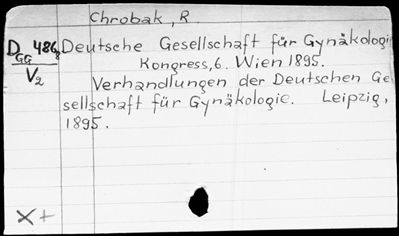 Chrobak, R.
D 4868 Deutsche Gesellschaft für Gynäkologi
GG Kongress, 6. Wien 1895.
V2 Verhandlungen der Deutschen Ge
sellschaft für Gynäkologie. Leipzig,
1895.
X+